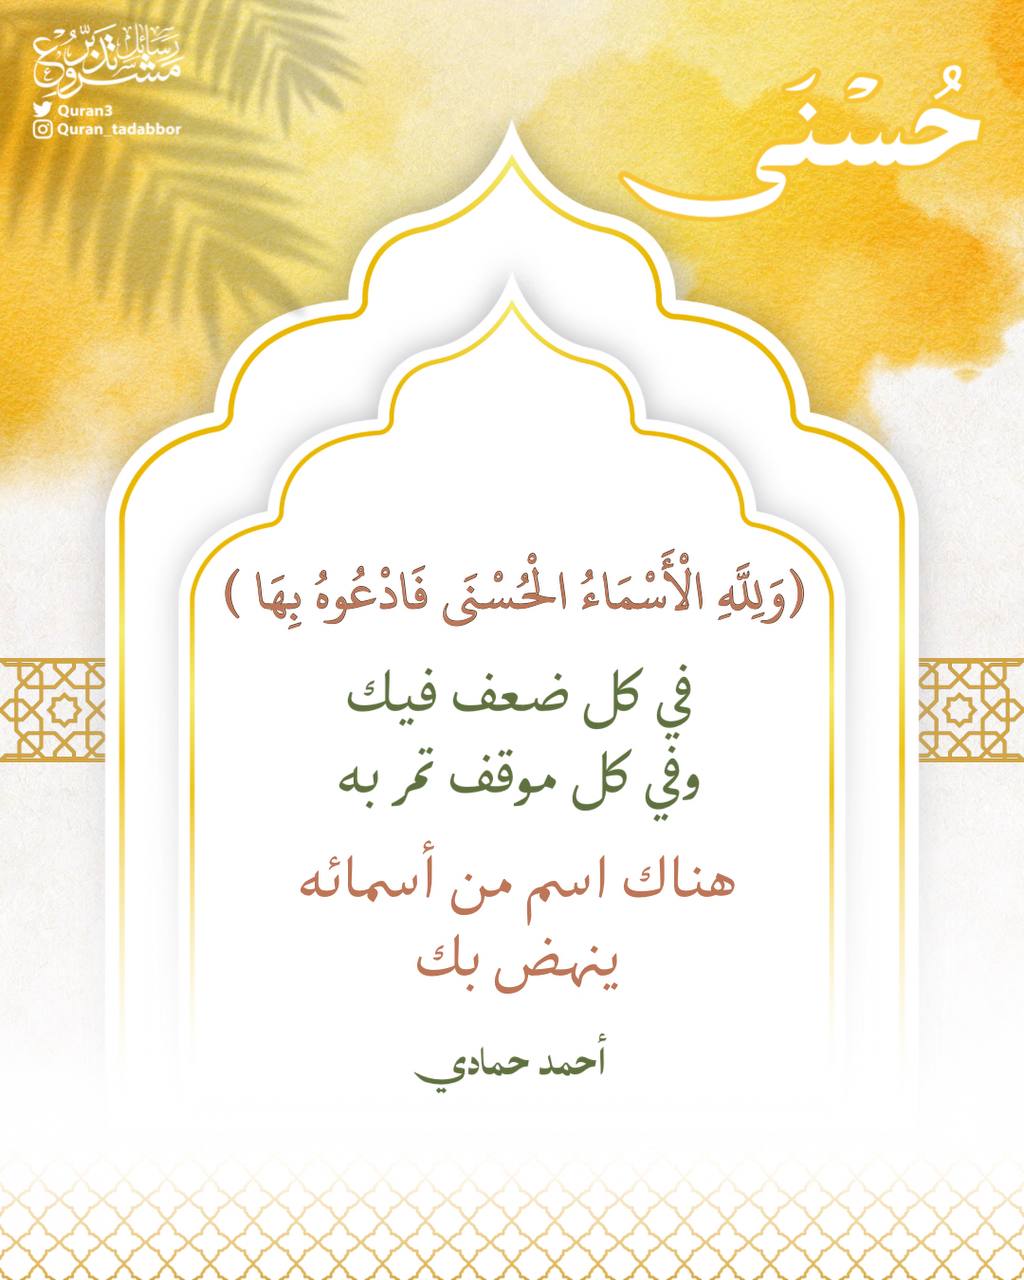 مشروع رسائل تدبر
Quran3
Quran_tadabbor
حُسْنَى
(وَلِلَّهِ الْأَسْمَاءُ الْحُسْنَى فَادْعُوهُ بِهَا )
في كل ضعف فيك
وفي كل موقف تمر به
هناك اسم من أسمائه
ينهض بك
أحمد حمادي